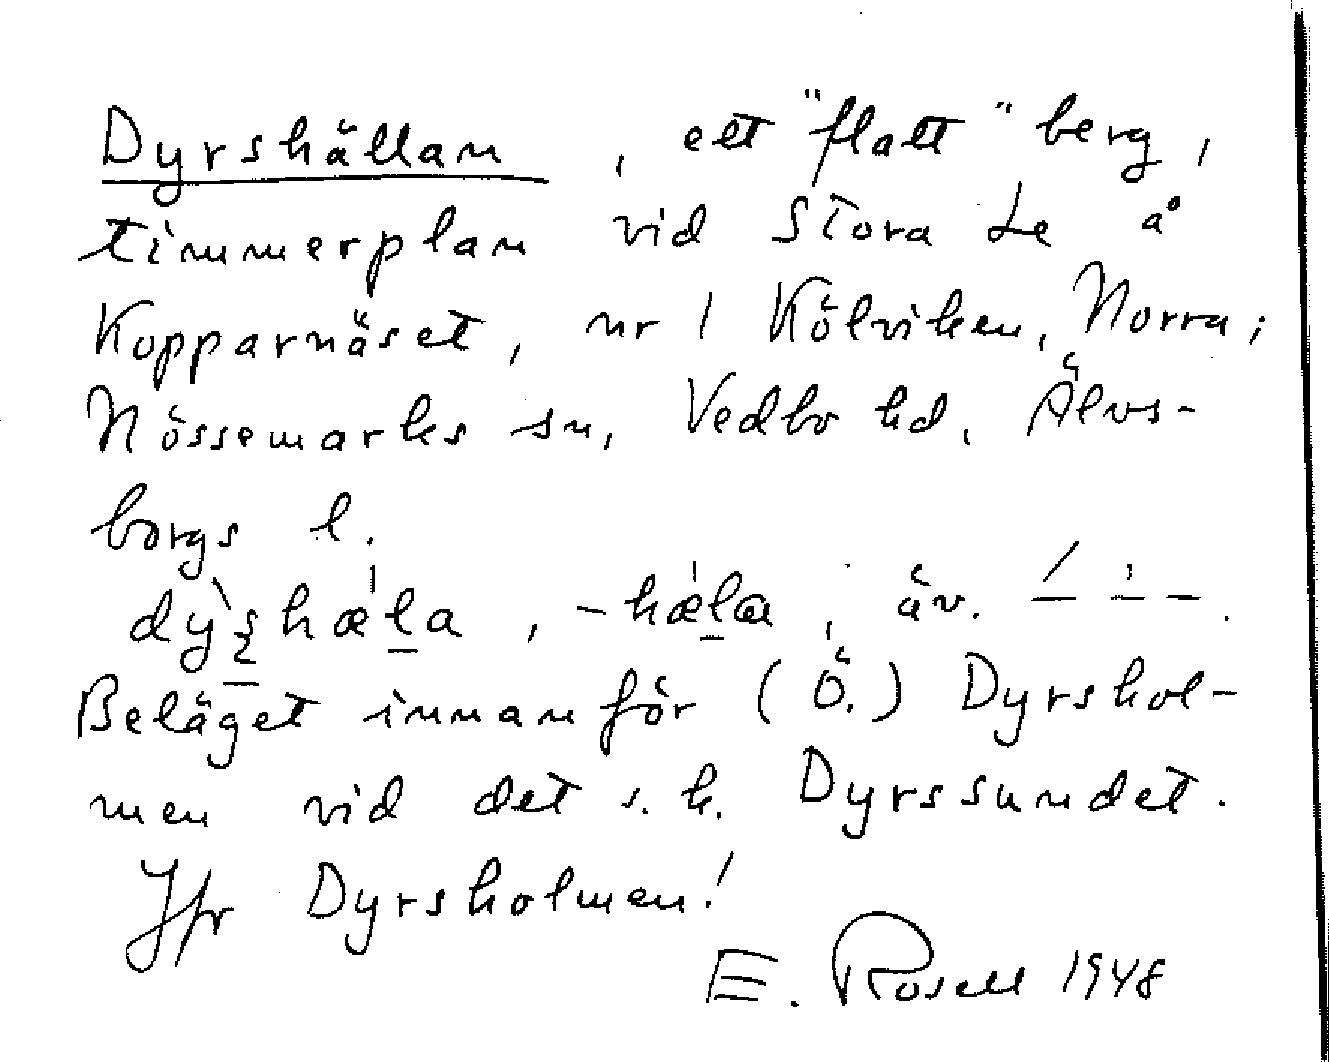 Dyrshällan, ett "flatt" berg,
timmerplan vid Stora Le å
Kopparnäset, nr 1 Kölviken, Norra;
Nössemarks sn, Vedbo hd, Älvs-
borgs l.
-hæla, äv. ⁄ ˈ –.
Beläget innanför (Ö.) Dyrshol-
men vid det s.k. Dyrssundet.
Jfr Dyrsholmen!
E. Rosell 1948